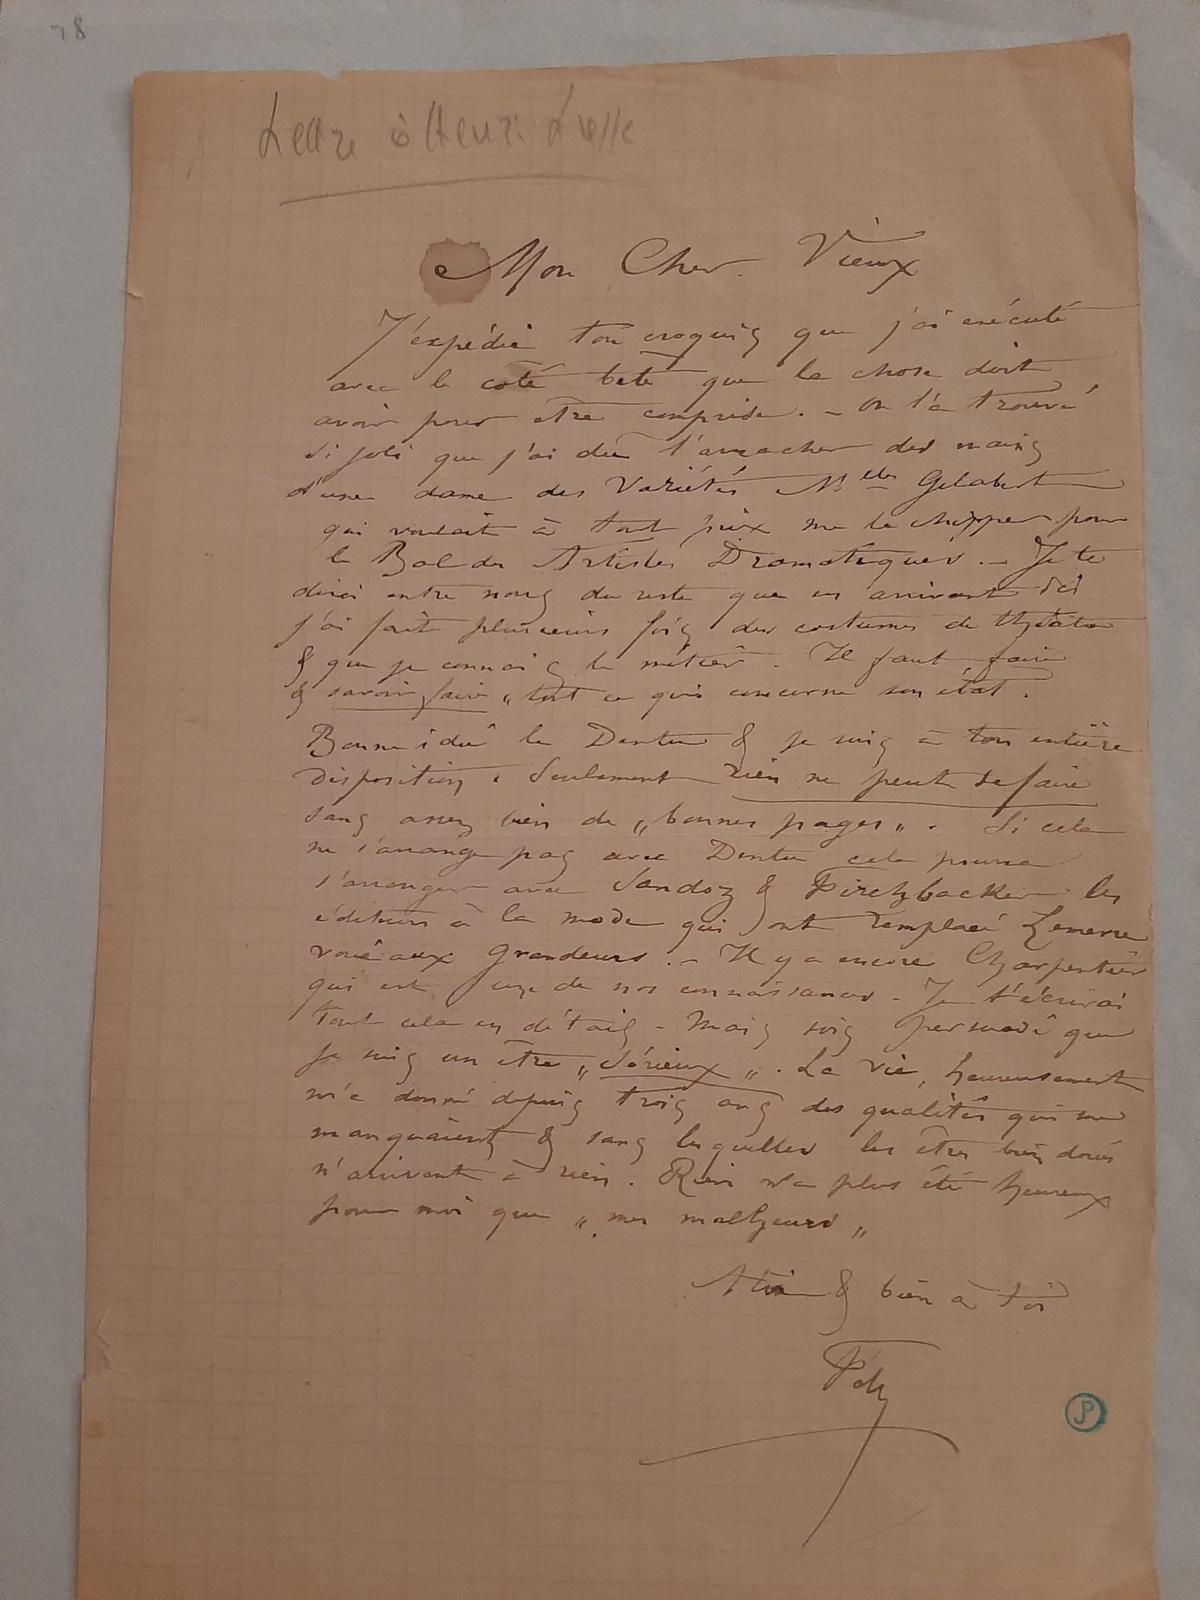 78
Lettre à Henri Liesse
Mon Cher Vieux
J'expédie ton croquis que j'ai exécuté
avec le coté bête que la chose doit
avoir pour être comprise. – On l'a trouvé
si joli que j'ai dû l'arracher des mains
d'une dame des Variétés Melle Gelabert
qui voulait à tout prix me le chipper pour
le Bal des Artistes Dramatiques. – Je te
dirai entre nous du reste que en arrivant ici
j'ai fait plusieurs fois des costumes de théâtre
& que je connais le métier. Il faut faire
& savoir faire „ tout ce qui concerne son état.
Bonne idée le Dentu & je suis à ton entière
disposition. Seulement rien ne peut se faire
sans assez bien de „bonnes pages„. Si cela
ne s'arrange pas avec Dentu cela pourra
s'arranger avec Sandoz & Firchbacker les
éditeurs à la mode qui ont remplacé Lemerre
voué aux grandeurs. – Il y a encore Charpentier
qui est une de nos connaissances – Je t'écrirai
tout cela en détail – Mais sois persuadé que
je suis un être „Sérieux„. La vie, heureusement
m'a donné depuis trois ans des qualités qui me
manquaient & sans lesquelles les êtres bien doués
n'arrivent à rien. Rien n'a plus été heureux
pour moi que „mes malheurs„
A toi & bien à toi
Fély
JP